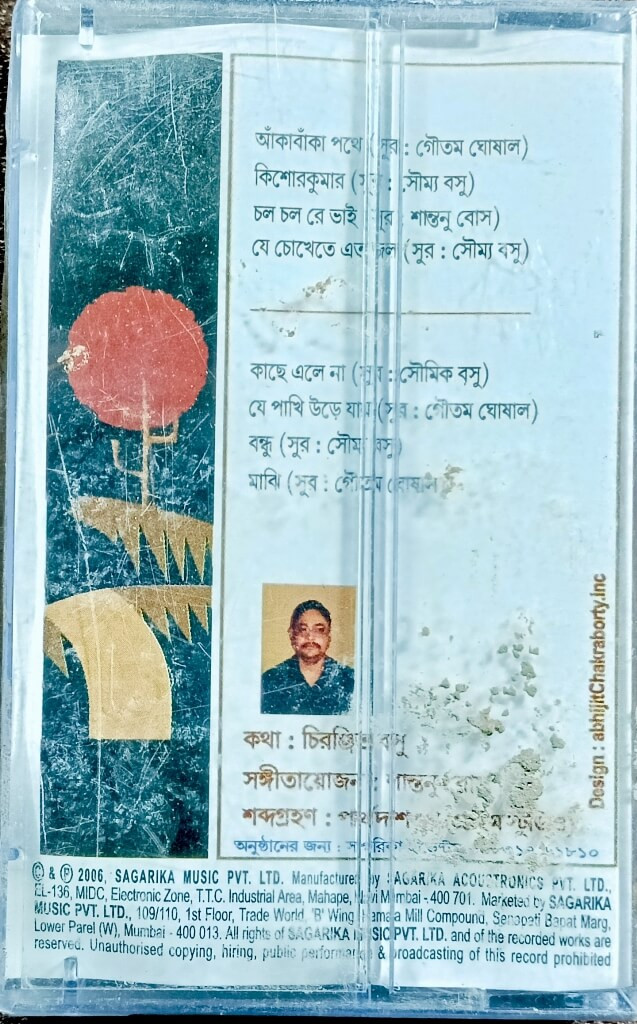 আঁকাবাঁকা পথে (সুর : গৌতম ঘোষাল)
কিশোরকুমার (সুর : সৌম্য বসু)
চল চল রে ভাই (সুর : শান্তনু বোস)
যে চোখেতে এত জল (সুর : সৌম্য বসু)
কাছে এলে না (সুর : সৌমিক বসু)
যে পাখি উড়ে যায় (সুর : গৌতম ঘোষাল)
বন্ধু (সুর : সৌম্য বসু)
মাঝি (সুর : গৌতম ঘোষাল)
Design : abhijitChakraborty.inc
কথা : চিরঞ্জিত বসু
সঙ্গীতায়োজন : শান্তনু
শব্দগ্রহণ :
অনুষ্ঠানের জন্য :
© & ℗ 2006, SAGARIKA MUSIC PVT. LTD. Manufactured by SAGARIKA ACOUSTRONICS PVT. LTD.,
EL-136, MIDC, Electronic Zone, T.T.C. Industrial Area, Mahape, Navi Mumbai - 400 701. Marketed by SAGARIKA
MUSIC PVT. LTD., 109/110, 1st Floor, Trade World, 'B' Wing, Kamala Mill Compound, Senapati Bapat Marg,
Lower Parel (W), Mumbai - 400 013. All rights of SAGARIKA MUSIC PVT. LTD. and of the recorded works are
reserved. Unauthorised copying, hiring, public performance & broadcasting of this record prohibited